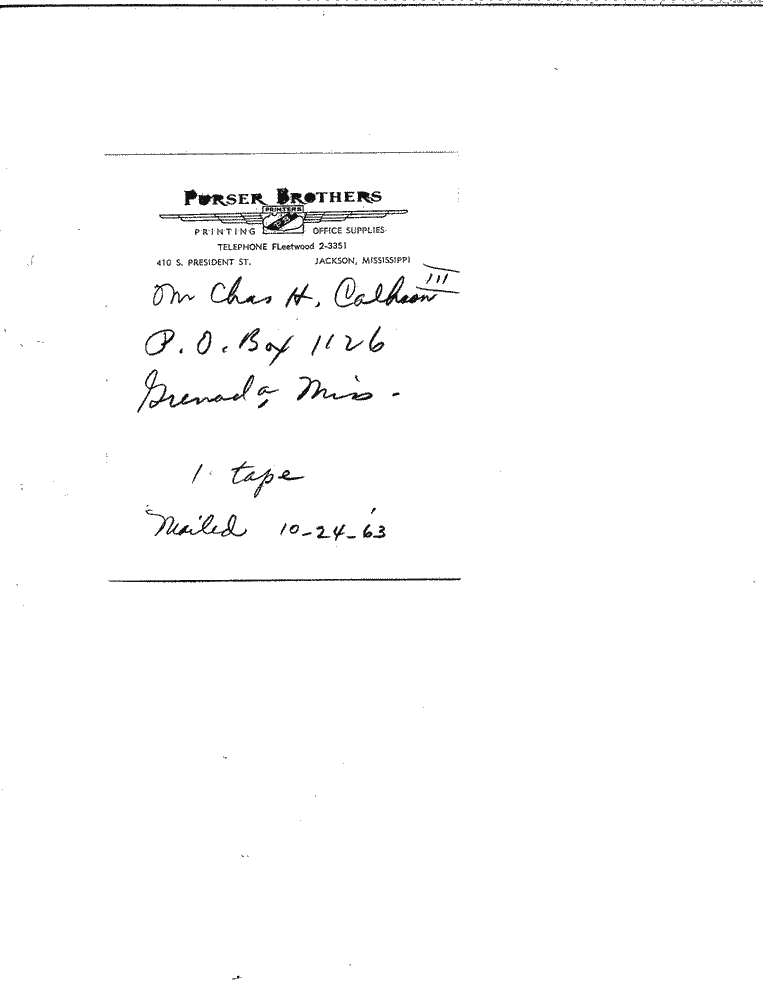 PURSER BROTHERS
PRINTERS
PRINTING OFFICE SUPPLIES
TELEPHONE FLeetwood 2-3351
410 S. PRESIDENT ST. JACKSON, MISSISSIPPI
Mr Chas H. Calhoon III
P. O. Box 1126
Grenada, Miss.
1 tape
Mailed 10-24-63